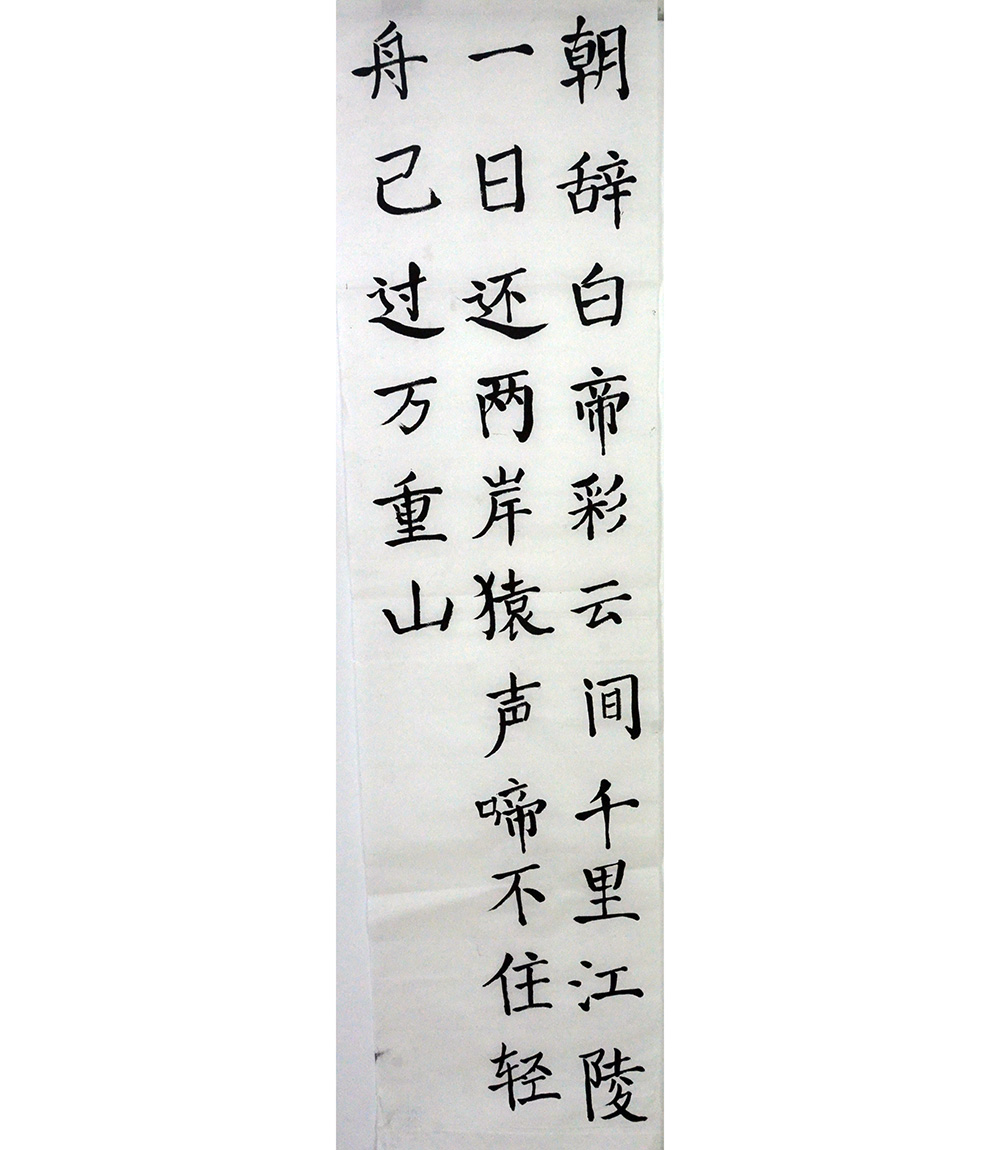 朝辞白帝彩云间千里江陵
一日还两岸猿声啼不住轻
舟已过万重山